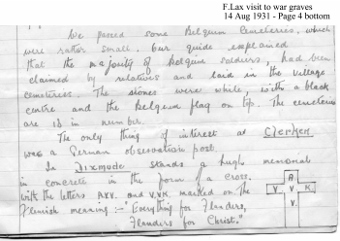 F.Lax visit to war graves
14 Aug 1931 - Page 4 bottom
We passed some Belgium Cemeteries, which
were rather small. Our guide explained
that the majority of Belgium soldiers, had been
claimed by relatives and laid in the village
cemeteries. The stones were white, with a black
centre and the Belgium flag on top. The cemeteries
are 18 in number.
The only thing of interest at Clerken
was a German observation post.
In Dixmode stands a high memorial
in concrete in the form of a cross,
with the letters A.V.V. and V.V.K. marked on the
Flemish meaning:- "Everything for Flanders,
Flanders for Christ."
A
V V K
V